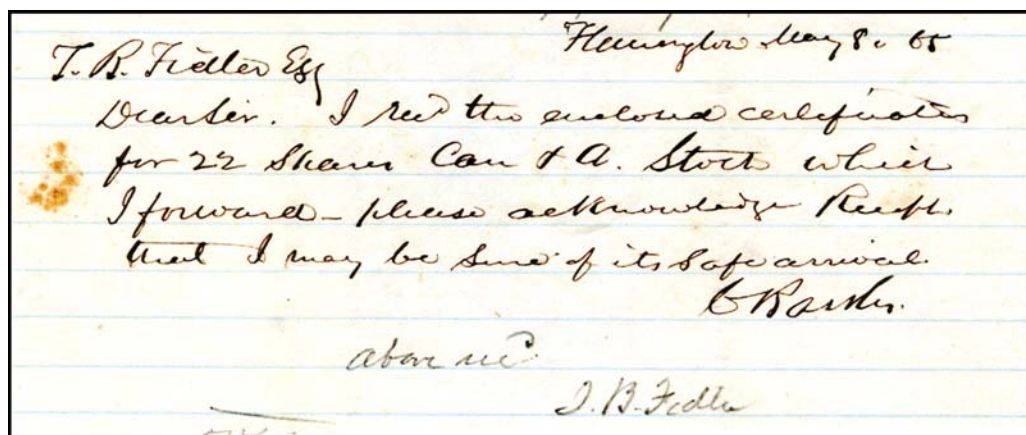 Flemington May 8. 65
T. B. Fidler Esq
Dear Sir. I recd the enclosed certificates
for 22 Shares Cam & A. Stock which
I forward - please acknowledge Receipt
that I may be sure of its safe arrival.
above recd
J. B. Fidler